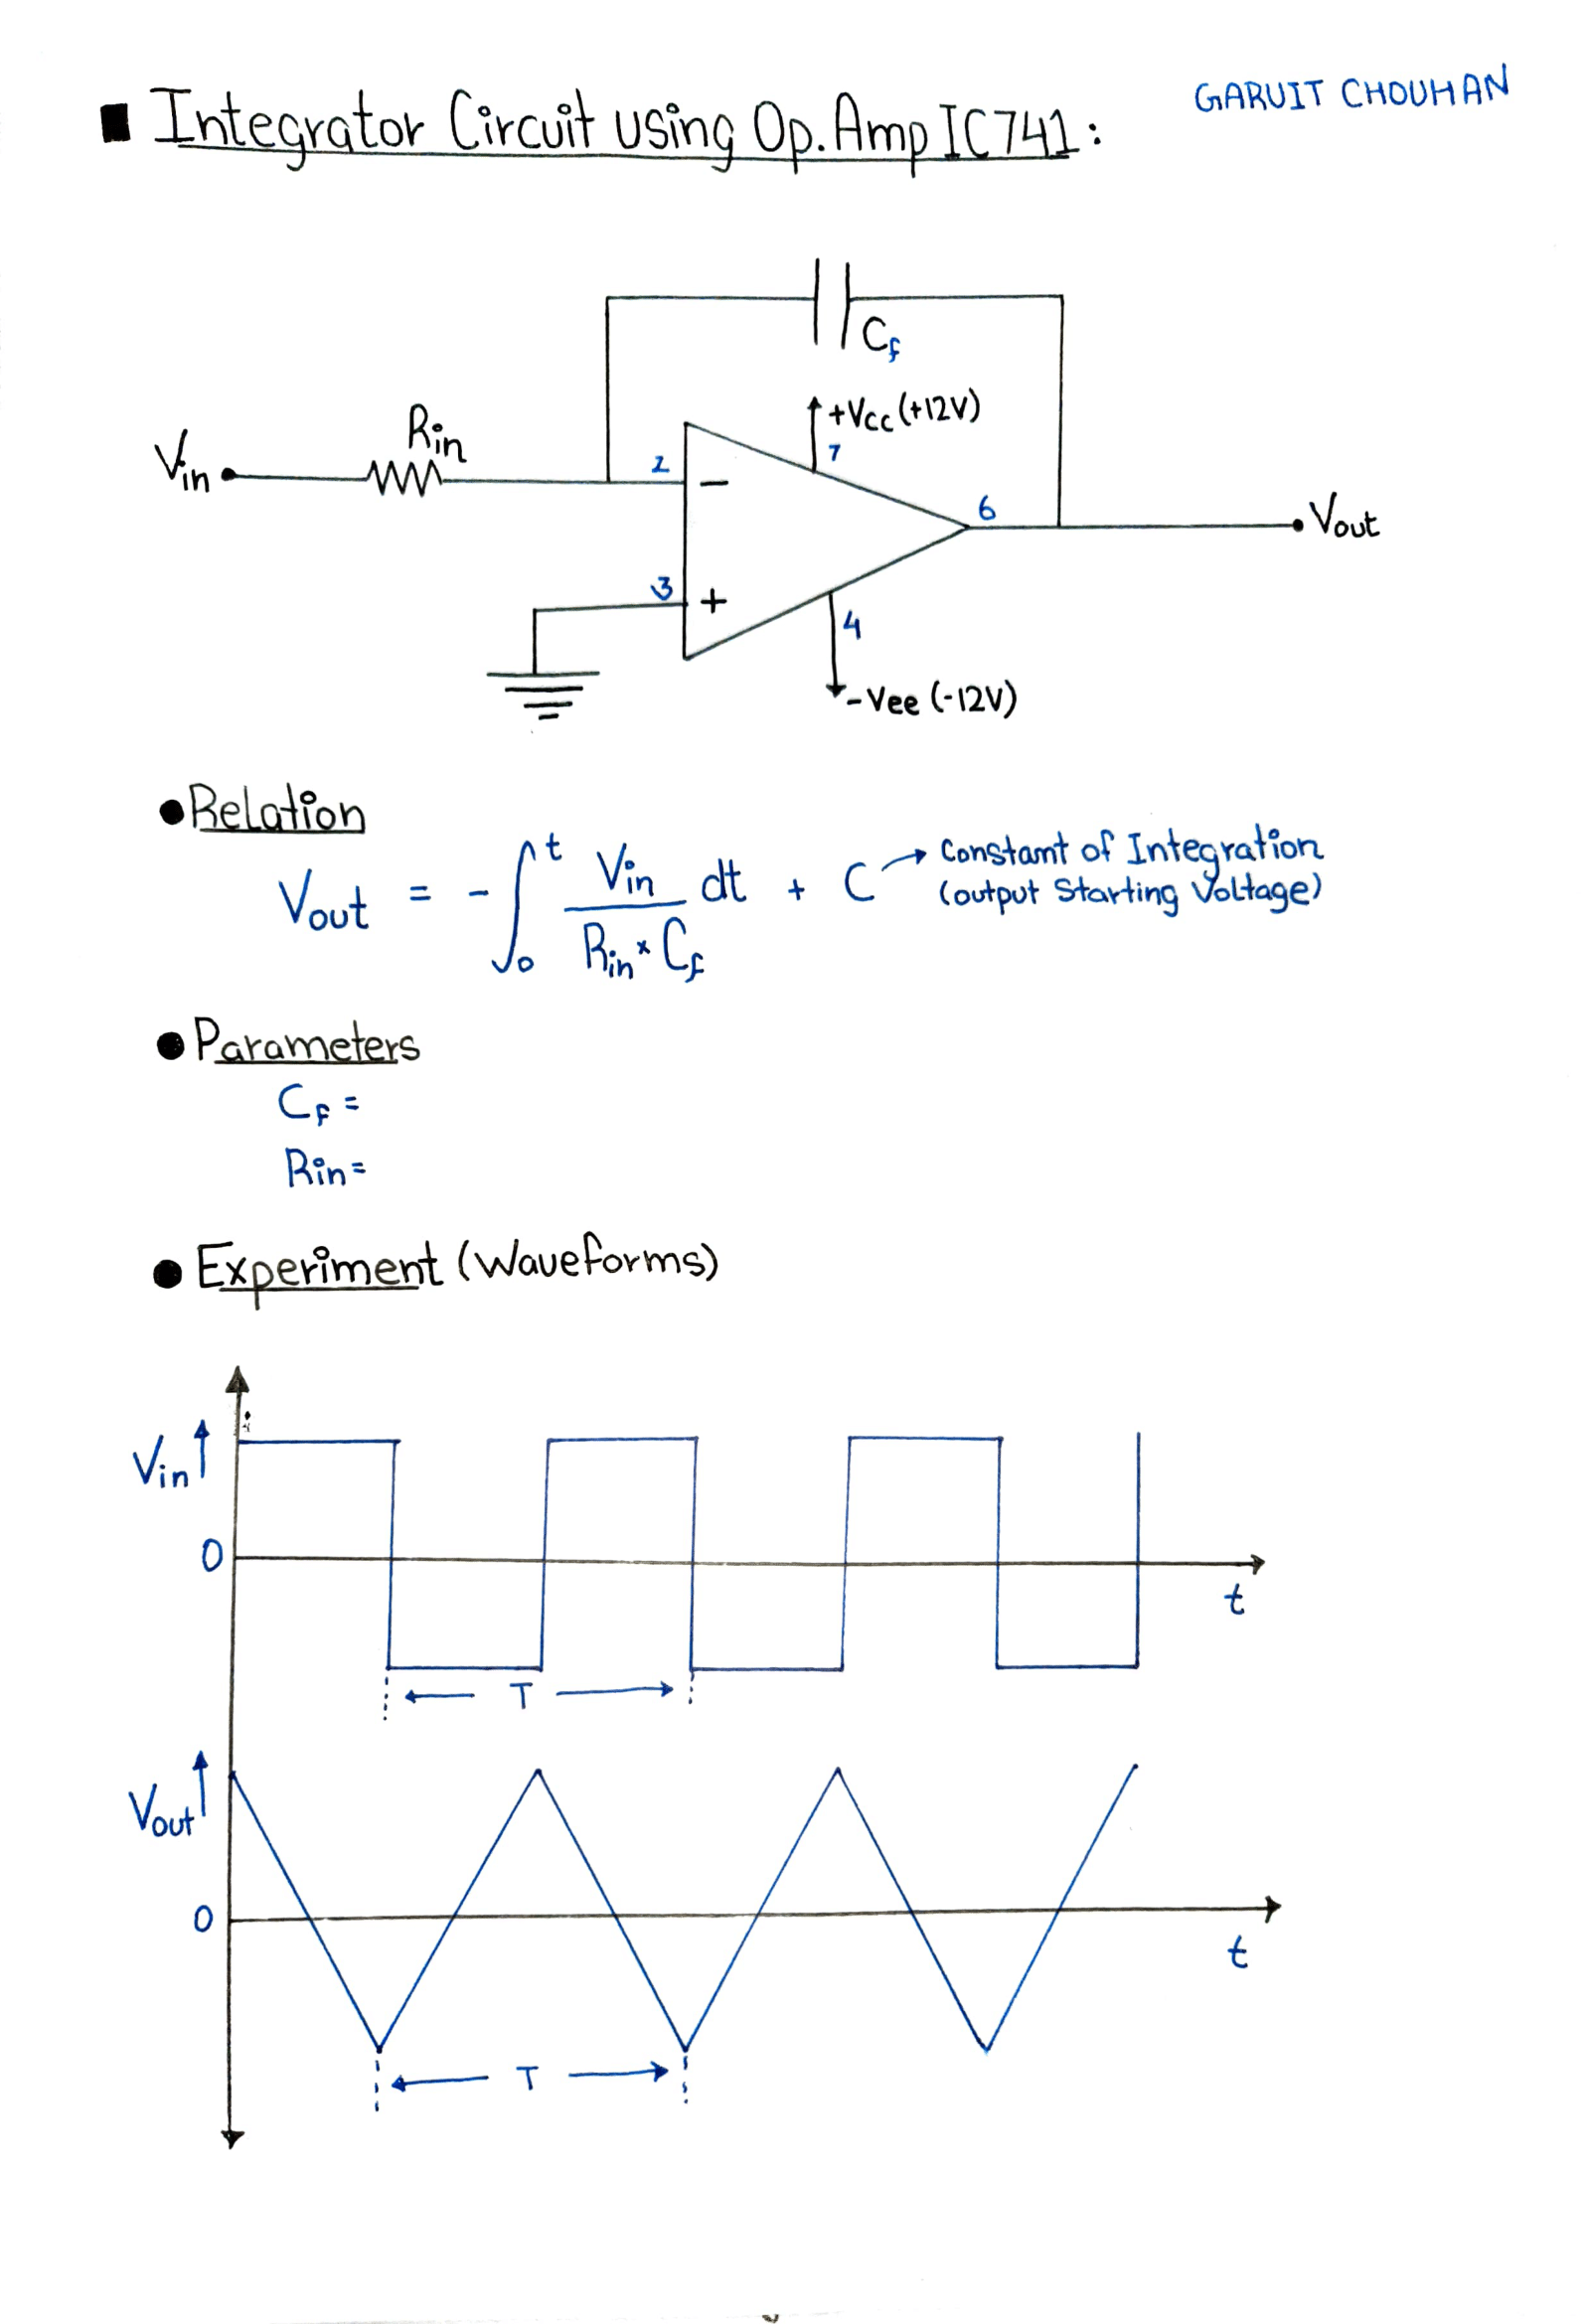 GARUIT CHOUHAN
■ Integrator Circuit using Op.Amp IC741:
Cf
+Vcc (+12V)
7
Rin
Vin
2
−
6
Vout
3
+
4
-Vee (-12V)
● Relation
Vout = - ∫₀ᵗ Vin / (Rin × Cf) dt + C → Constant of Integration
(output Starting Voltage)
● Parameters
CF =
Rin =
● Experiment (Waveforms)
Vin
0
t
T
Vout
0
t
T